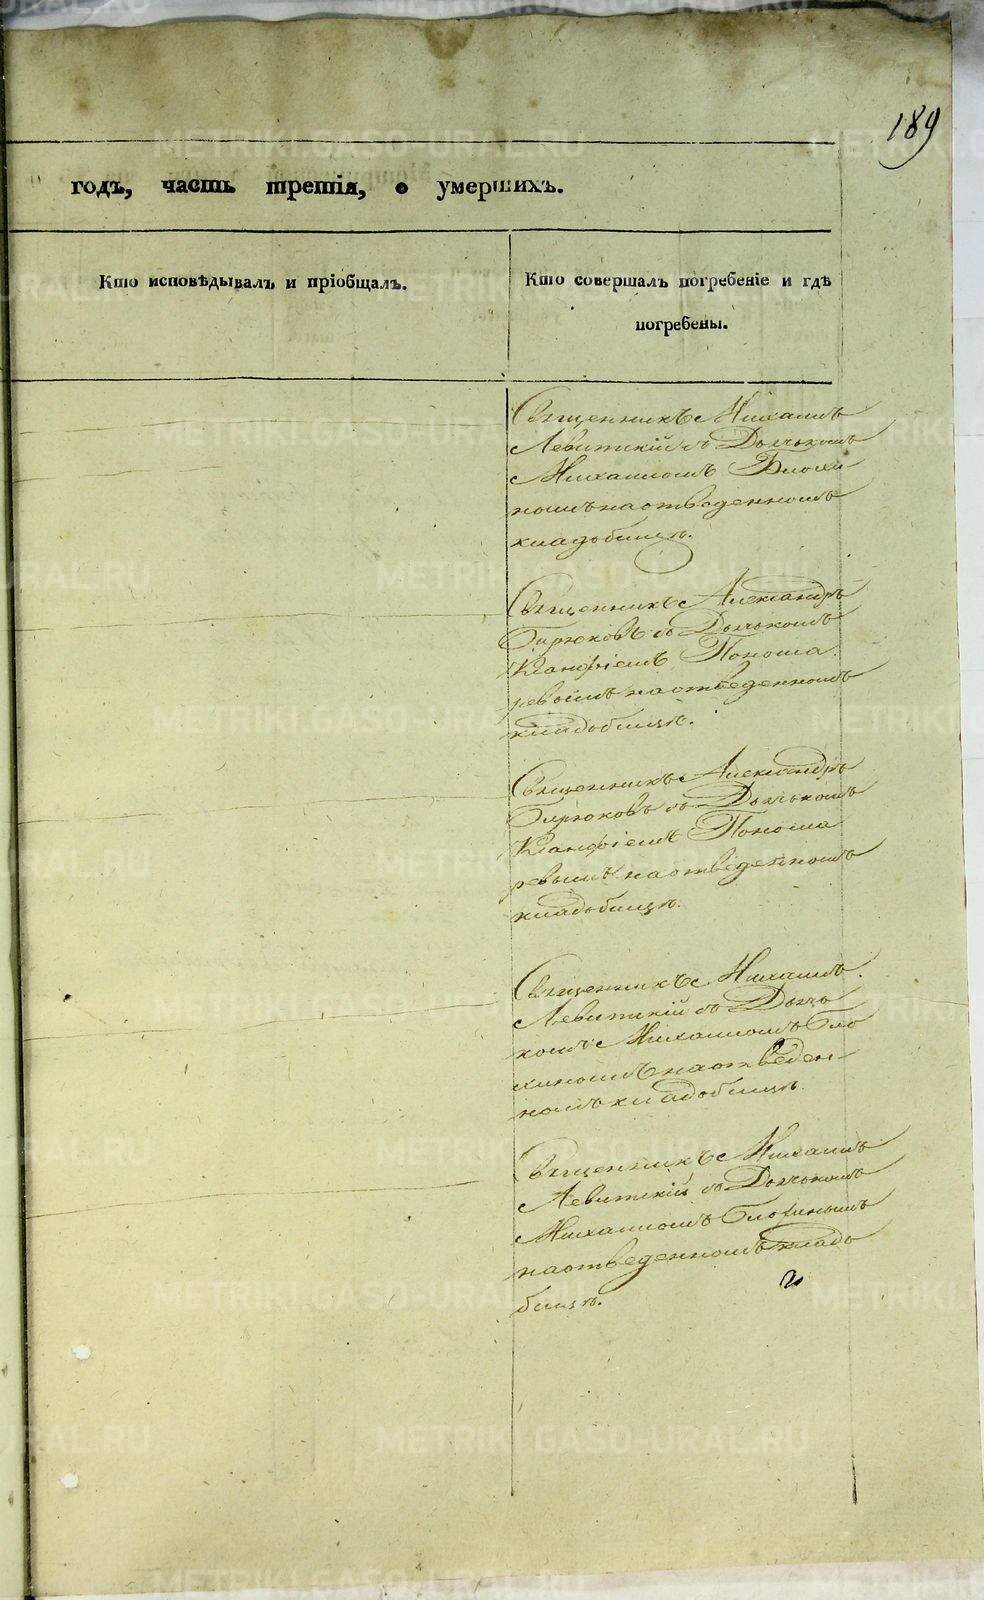 189
годъ, часть третія, о умершихъ.
Кто исповѣдывалъ и пріобщалъ.
Кто совершалъ погребеніе и гдѣ
погребены.
Священникъ Михаилъ
Левитскій съ Дьячкомъ
Михаиломъ Блохи
номъ на отведенномъ
кладбищѣ.
Священникъ Александръ
Бирюковъ съ Дьячкомъ
Ксанфіемъ Понома
ревымъ на отведенномъ
кладбищѣ.
Священникъ Александръ
Бирюковъ съ Дьячкомъ
Ксанфіемъ Понома
ревымъ на отведенномъ
кладбищѣ.
Священникъ Михаилъ
Левитскій съ Дьяч
комъ Михаиломъ Бло
хиномъ на отведен-
номъ кладбищѣ.
Священникъ Михаилъ
Левитскій съ Дьячкомъ
Михаиломъ Блохинымъ
на отведенномъ кладо
бищѣ.
METRIKI.GASO-URAL.RU